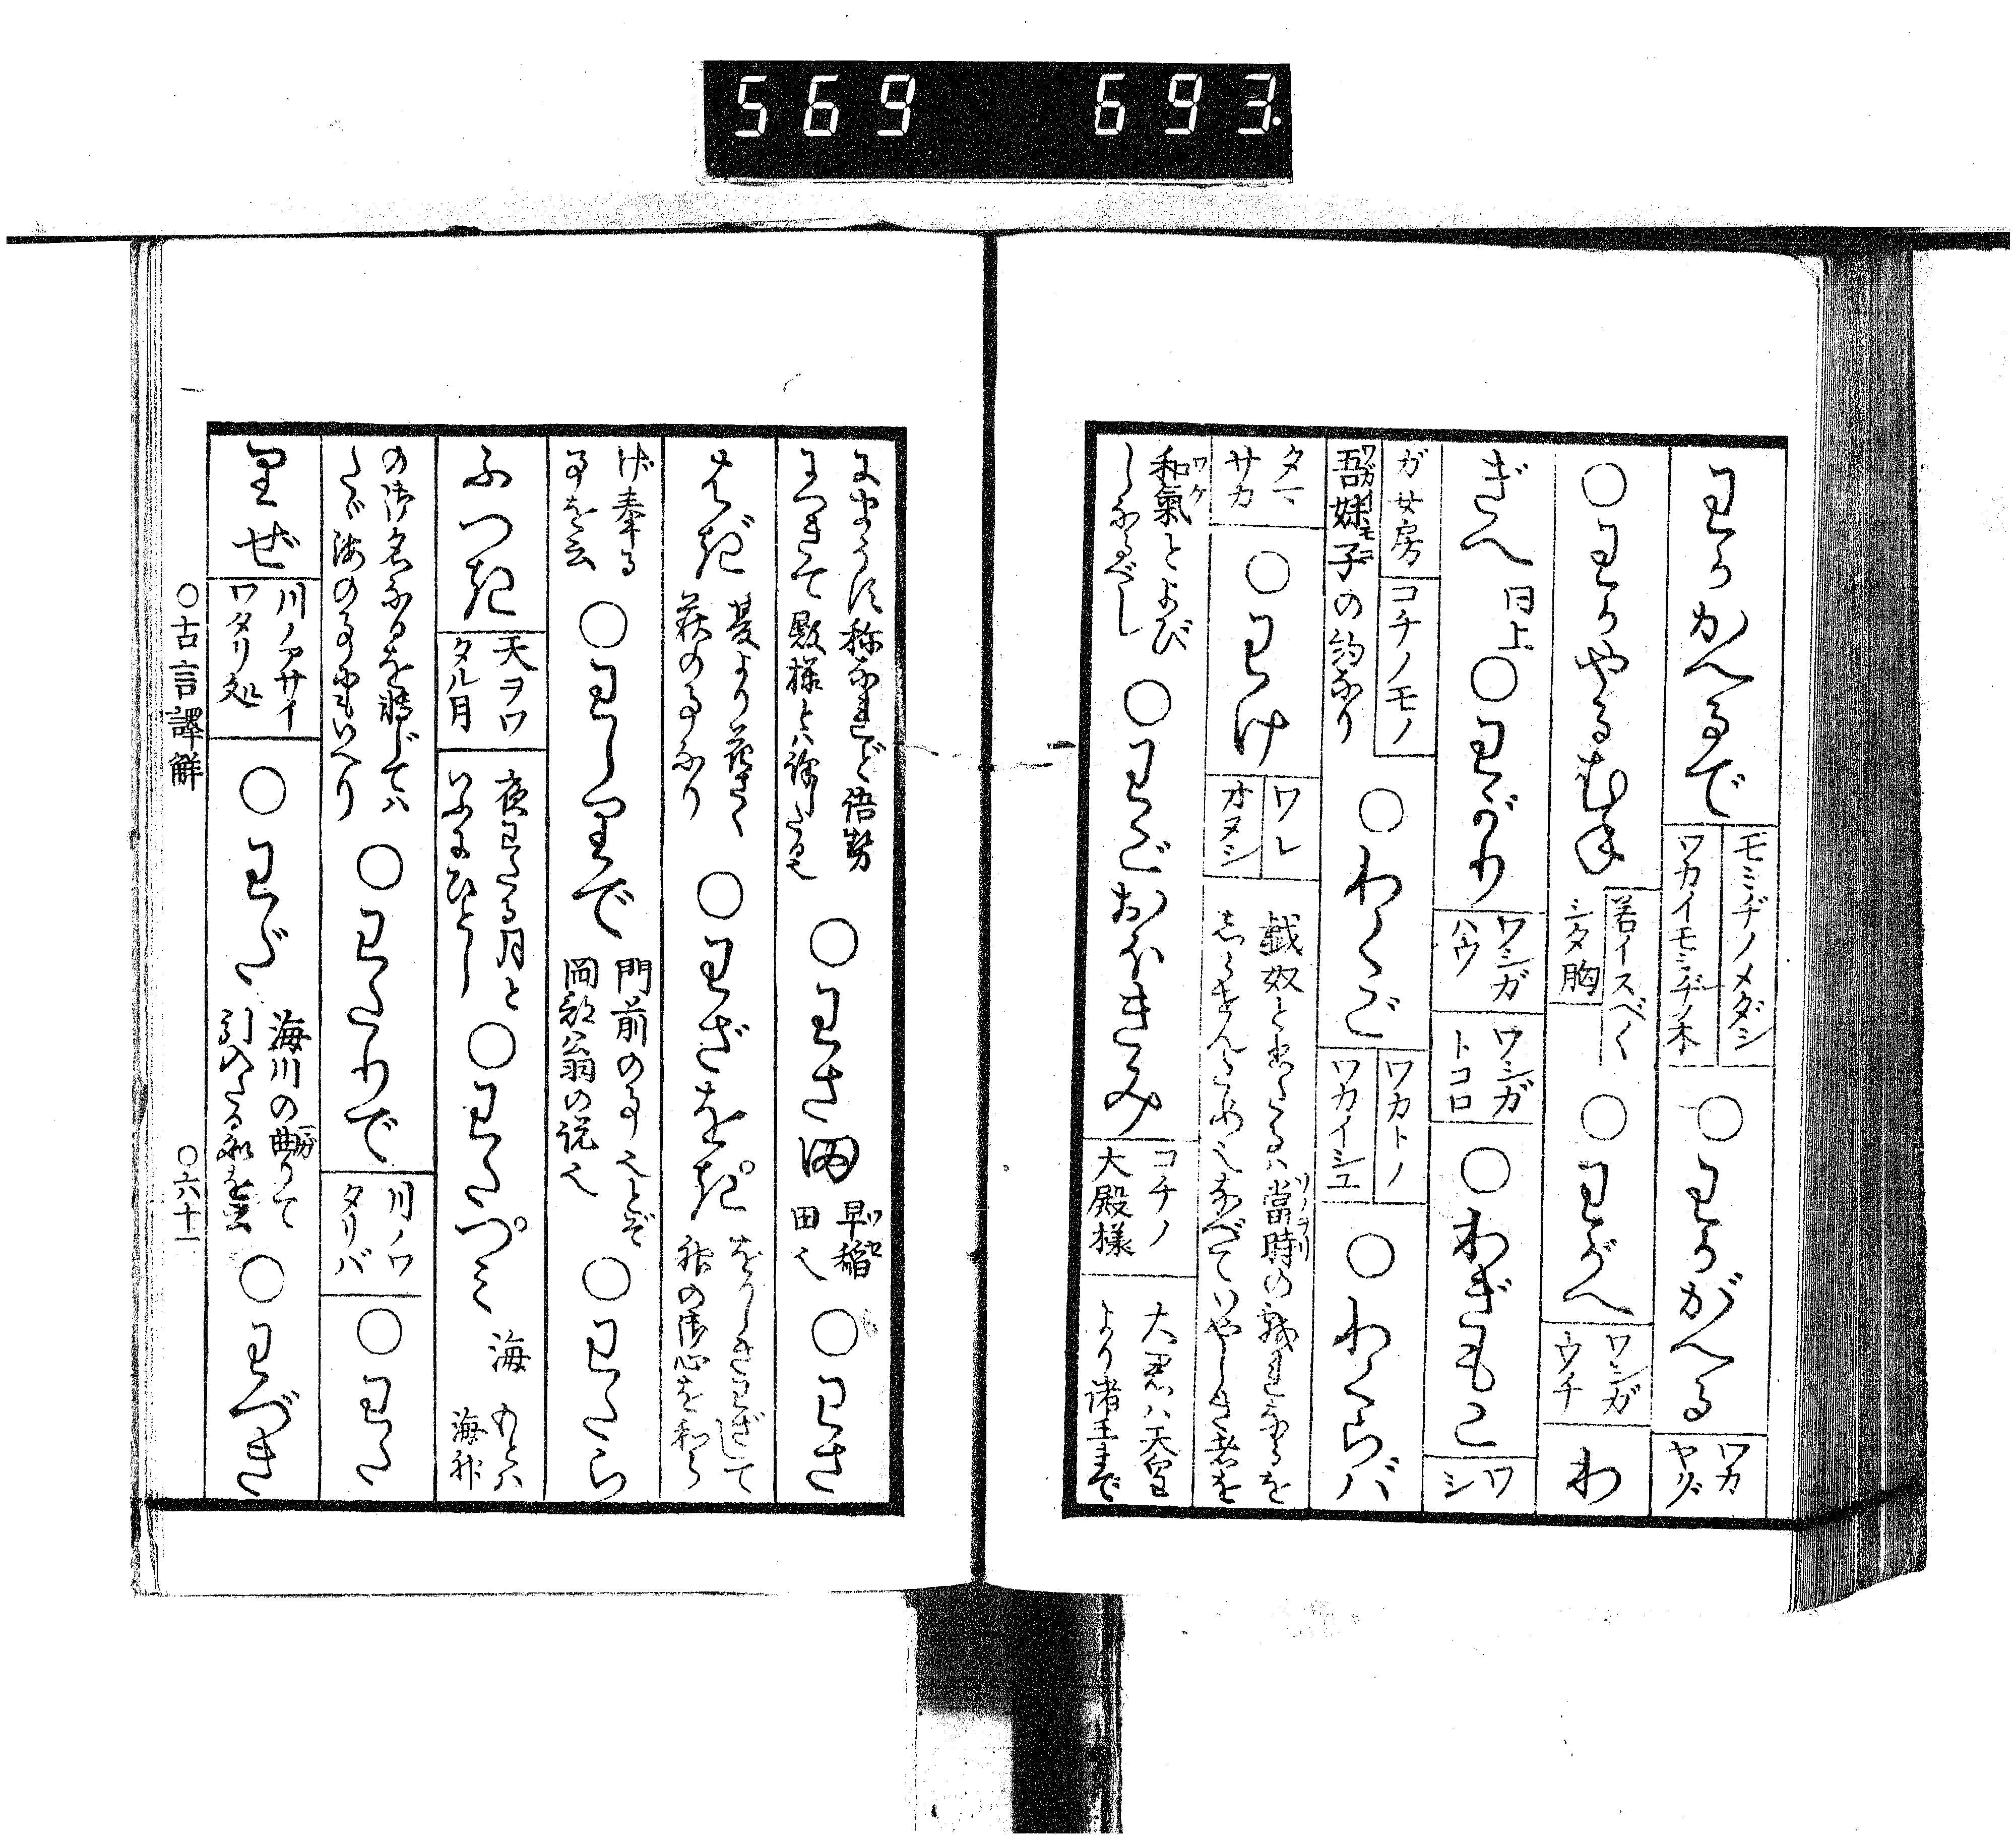 569 693
わかかへるで モミヂノメダシ ワカイモミヂノ木 ○わかがへる ワカヤグ
○わかやるむね 若イスベ〳〵シタ胸 ○わがへ ワシガウチ わ
ぎへ 同上 ○わがり ワシガハウ ワシガトコロ ○わぎもこ ワシ
ガ女房 コチノモノ 吾妹子の約なり ワガイモコ ○わくご ワカトノ ワカイシユ ○わくらバ
タマサカ ○わけ ワレ オヌシ 戯奴とかきたるハ當時の
和氣とよび ワケ しなるべし ○わごおほきみ コチノ大殿様 大君ハ天皇より諸王まで
にわたる称なれど
につきて殿様とハ譯したる也 ○わさ田 早稲田也 ○わさ
はぎ 夏より花さく萩の事なり ○わざをぎ をかしきわざして神の御心を和ら
げ奉る事を云 ○わしりで 門前の事也とぞ岡部翁の説也 ○わたら
ふつき 天ヲワタル月 夜わたる月といふにひとし ○わたつミ 海 もとハ海神
の御名なるを轉じてハたゞ海の事にもいへり ○わたりで 川ノワタリバ ○わた
りぜ 川ノアサイワタリ処 ○わだ 海川の曲りて引入たる所を云 ○わづき
○古言譯解 ○六十一